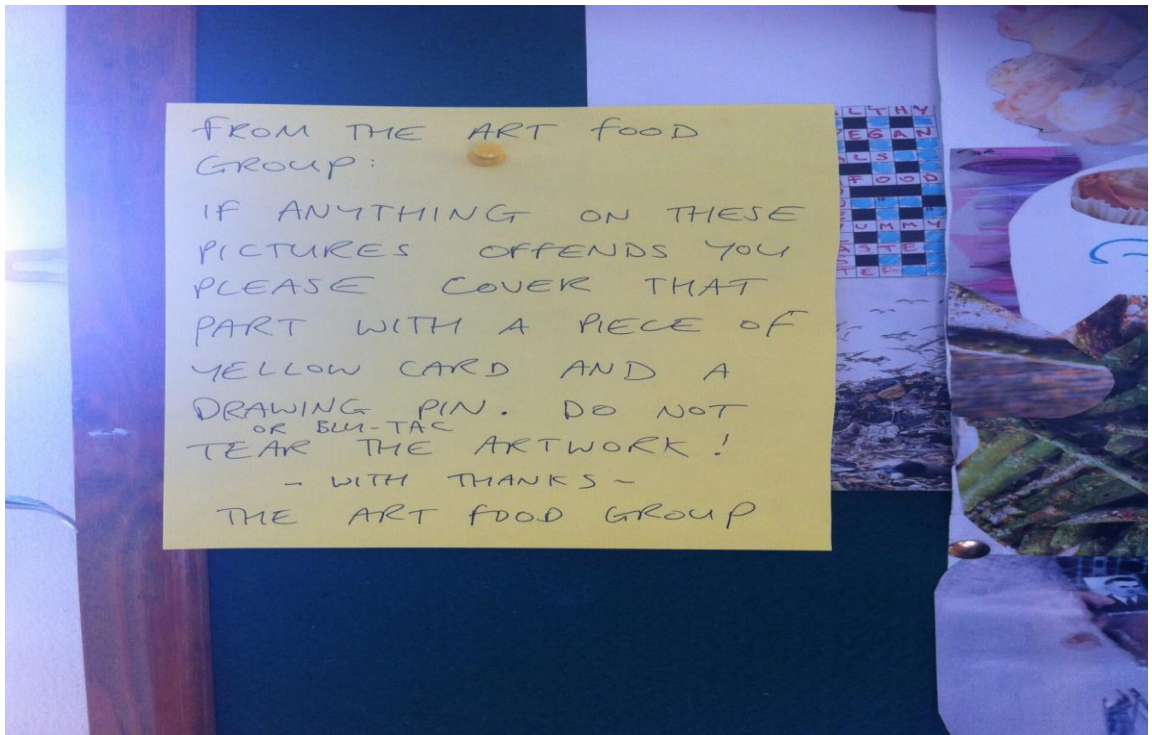 FROM THE ART FOOD
GROUP:
IF ANYTHING ON THESE
PICTURES OFFENDS YOU
PLEASE COVER THAT
PART WITH A PIECE OF
YELLOW CARD AND A
DRAWING PIN. DO NOT
OR BLU-TAC
TEAR THE ARTWORK!
- WITH THANKS -
THE ART FOOD GROUP
LTHY
EGAN
LS
FOOD
UMMY
STE